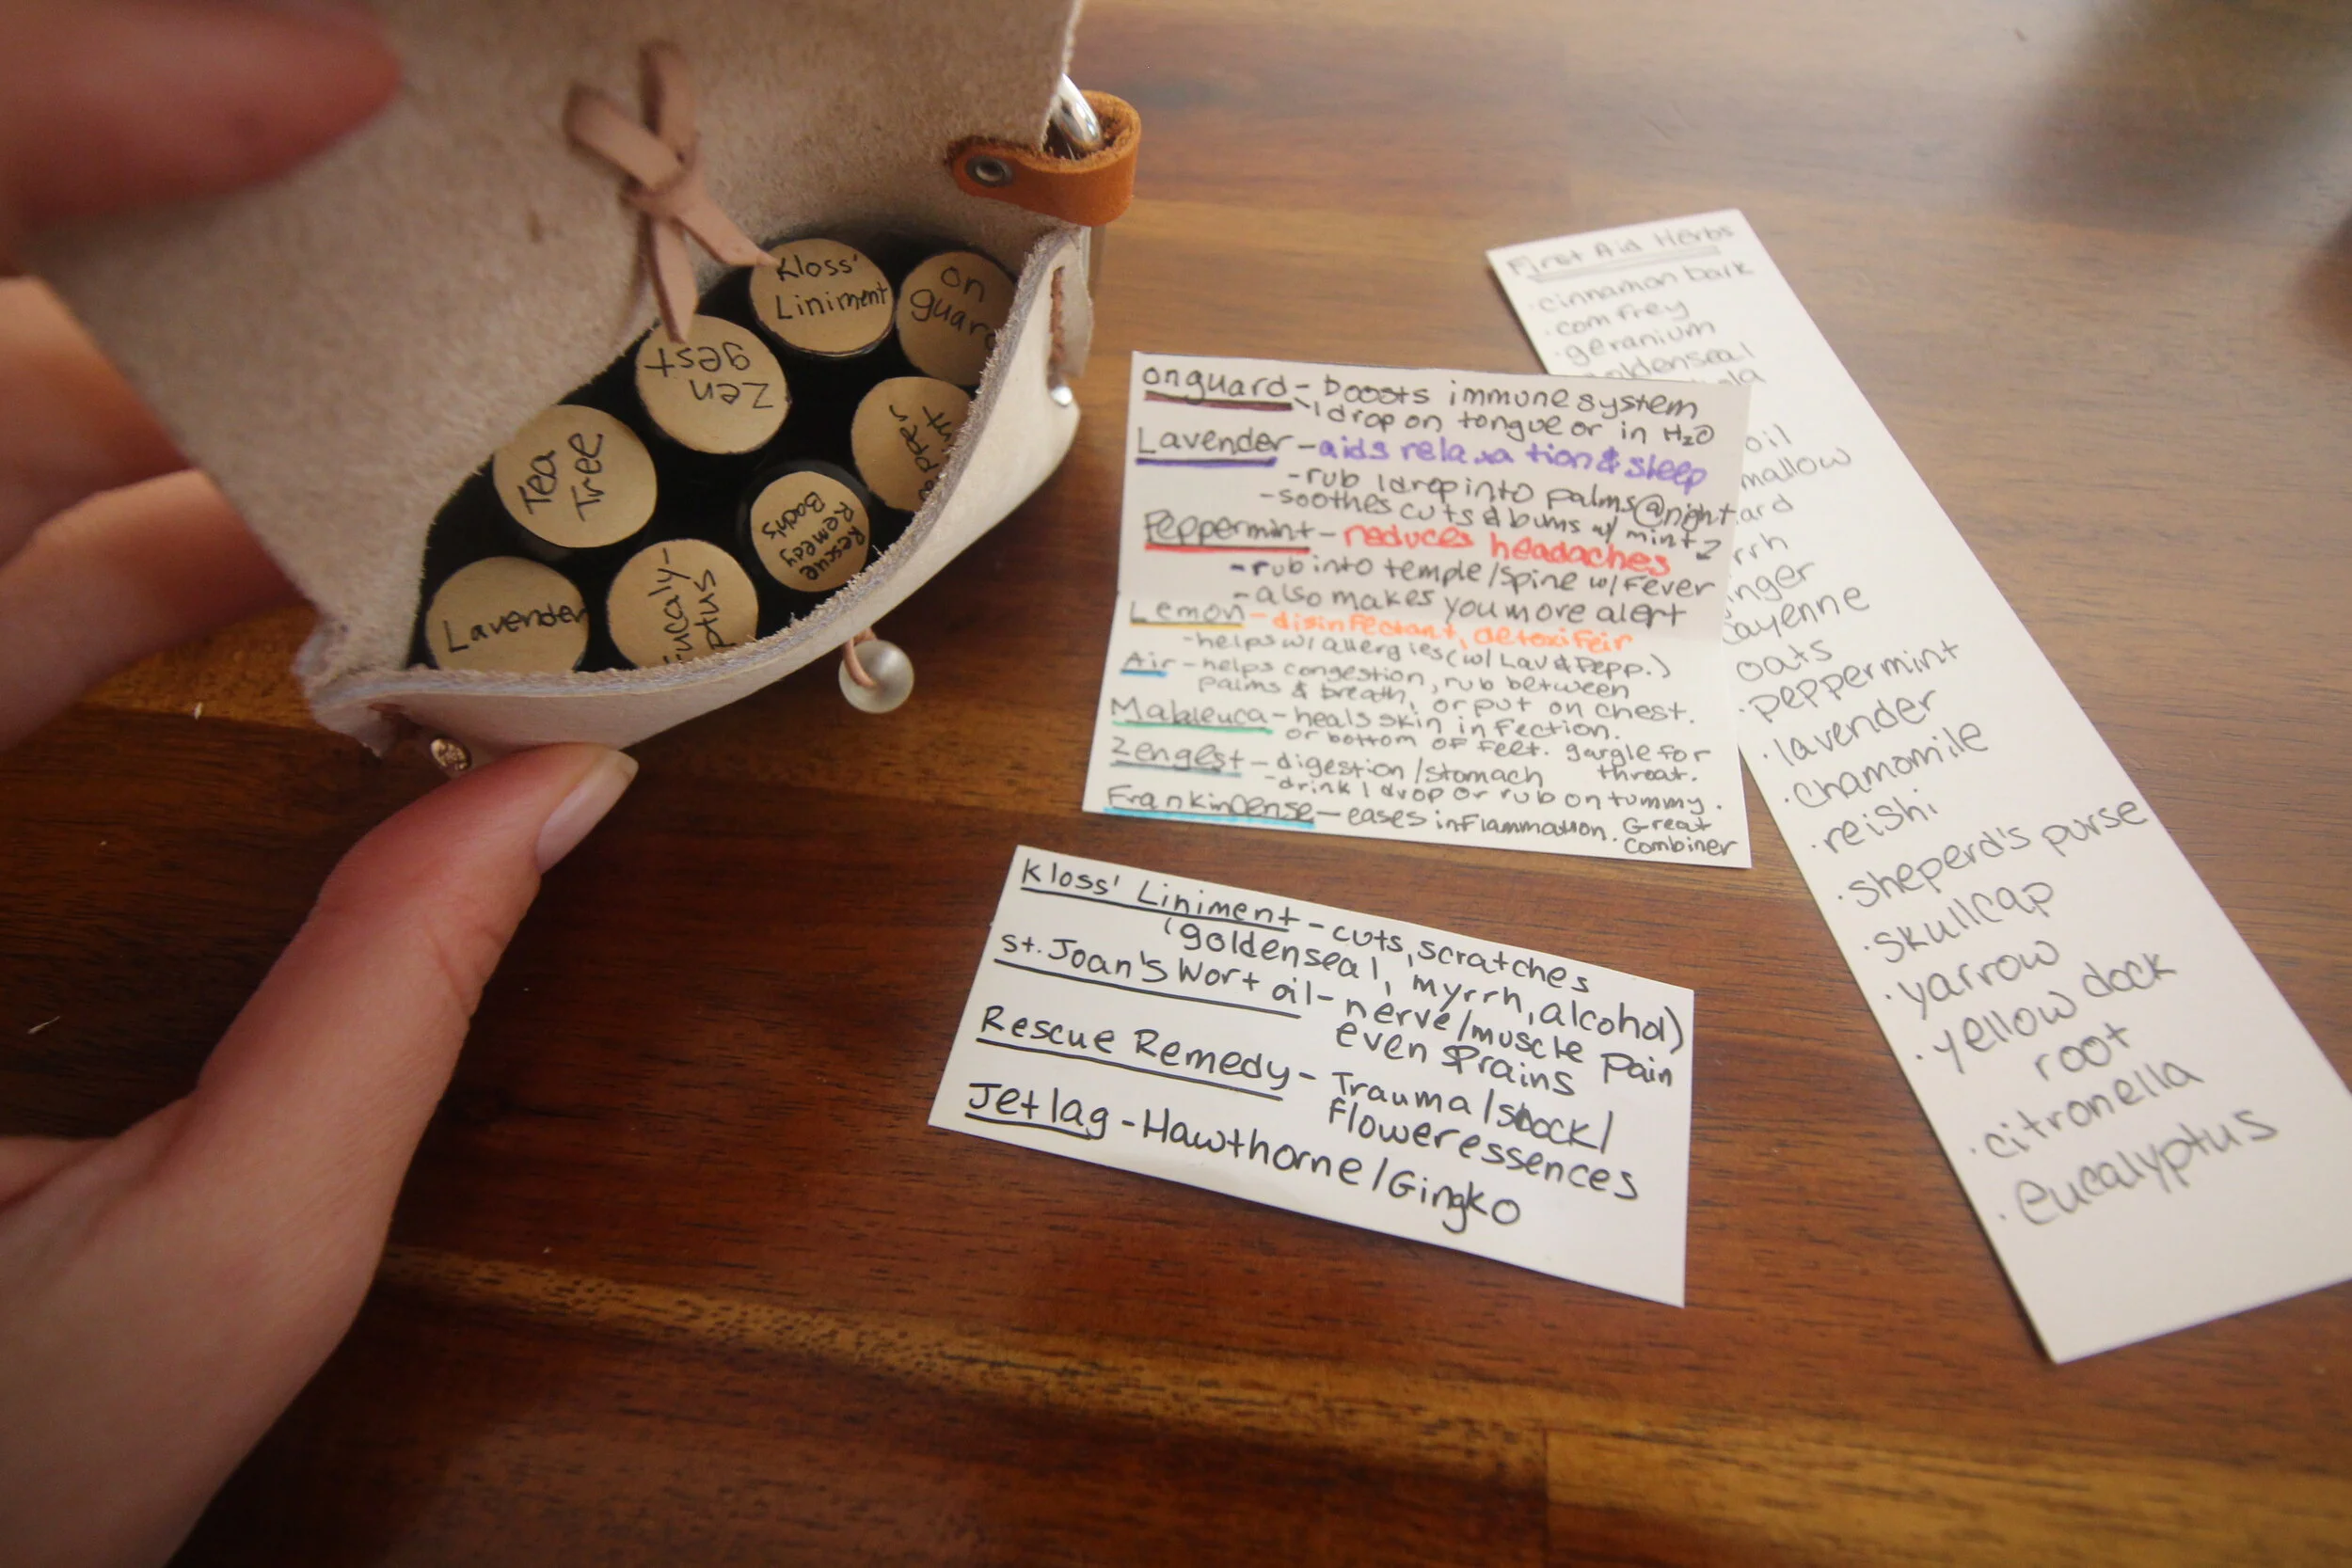 Kloss'
Liniment
on
guard
Zen
gest
Tea
Tree
Bach's
Rescue
Remedy
Lavender
Eucaly-
ptus
onguard - boosts immune system
1 drop on tongue or in H₂O
Lavender - aids relaxation & sleep
- rub 1 drop into palms @ night
- soothes cuts & burns w/ mint
Peppermint - reduces headaches
- rub into temple/spine w/ Fever
- also makes you more alert
Lemon - disinfectant, detoxifeir
- helps w/ allergies (w/ Lav & Pepp.)
Air - helps congestion, rub between
palms & breath, or put on chest.
- heals skin infection.
or bottom of feet. gargle for
throat.
Zengest - digestion/stomach
- drink 1 drop or rub on tummy.
Frankincense - eases inflammation. Great
Combiner
Kloss' Liniment - cuts, scratches
(goldenseal, myrrh, alcohol)
St. Joan's Wort oil - nerve/muscle Pain
even Sprains
Rescue Remedy - Trauma/shock/
Flower essences
Jetlag - Hawthorne/Gingko
First Aid Herbs
· cinnamon bark
· comfrey
· geranium
oldenseal
oil
mallow
ard
rrh
inger
cayenne
oats
· peppermint
· lavender
· chamomile
· reishi
· sheperd's purse
· skullcap
· yarrow
· yellow dock
root
· citronella
· eucalyptus